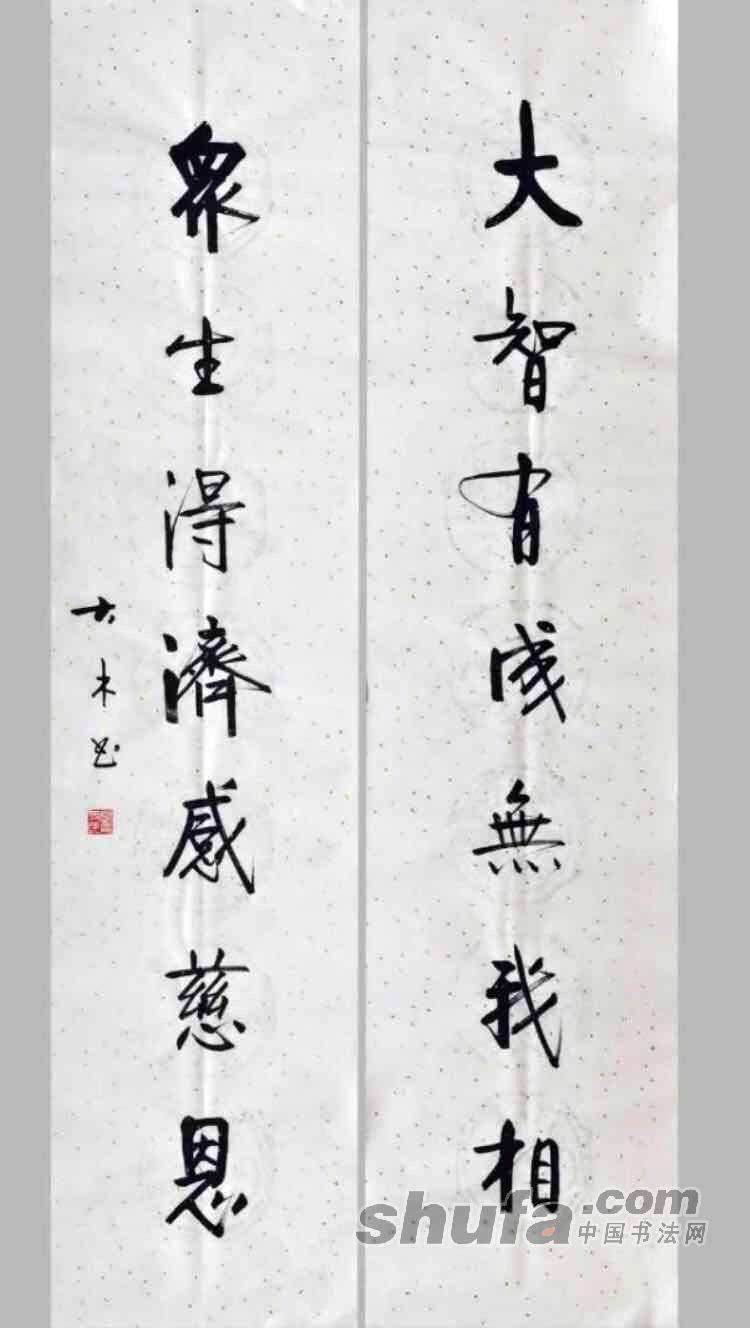 大智有成無我相
眾生得濟感慈恩
大木书
shufa.com
中国书法网